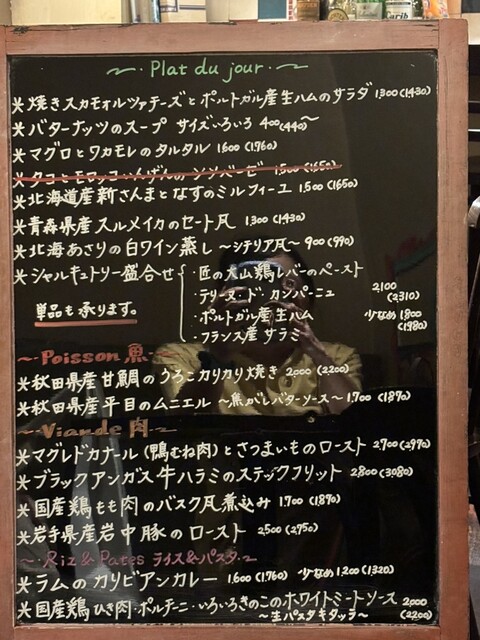 Plat du jour
*焼きスカモルツァチーズとポルトガル産生ハムのサラダ 1300(1430)
*バターナッツのスープ サイズいろいろ 400(440)~
*マグロとワカモレのタルタル 1600(1760)
1500(1650)
*北海道産新さんまとなすのミルフィーユ 1500(1650)
*青森県産スルメイカのセート風 1300(1430)
*北海あさりの白ワイン蒸し ~シチリア風~ 900(990)
*シャルキュトリー盛合せ
単品も承ります。
・匠の大山鶏レバーのペースト
・テリーヌ・ド・カンパーニュ
・ポルトガル産生ハム
・フランス産サラミ
2100
(2310)
少なめ1800
(1980)
~・Poisson 魚・~
*秋田県産甘鯛のうろこカリカリ焼き 2000(2200)
*秋田県産平目のムニエル ~焦がしバターソース~ 1700(1870)
~・Viande 肉・~
*マグレドカナール(鴨むね肉)とさつまいものロースト 2700(2970)
*ブラックアンガス牛ハラミのステックフリット 2800(3080)
*国産鶏もも肉のバスク風煮込み 1700(1870)
*岩手県産岩中豚のロースト 2500(2750)
~・Riz & Pates ライス&パスタ・~
*ラムのカリビアンカレー 1600(1760) 少なめ1200(1320)
*国産鶏ひき肉・ポルチーニ・いろいろきのこのホワイトミートソース 2000
~生パスタキタッラ~ (2200)